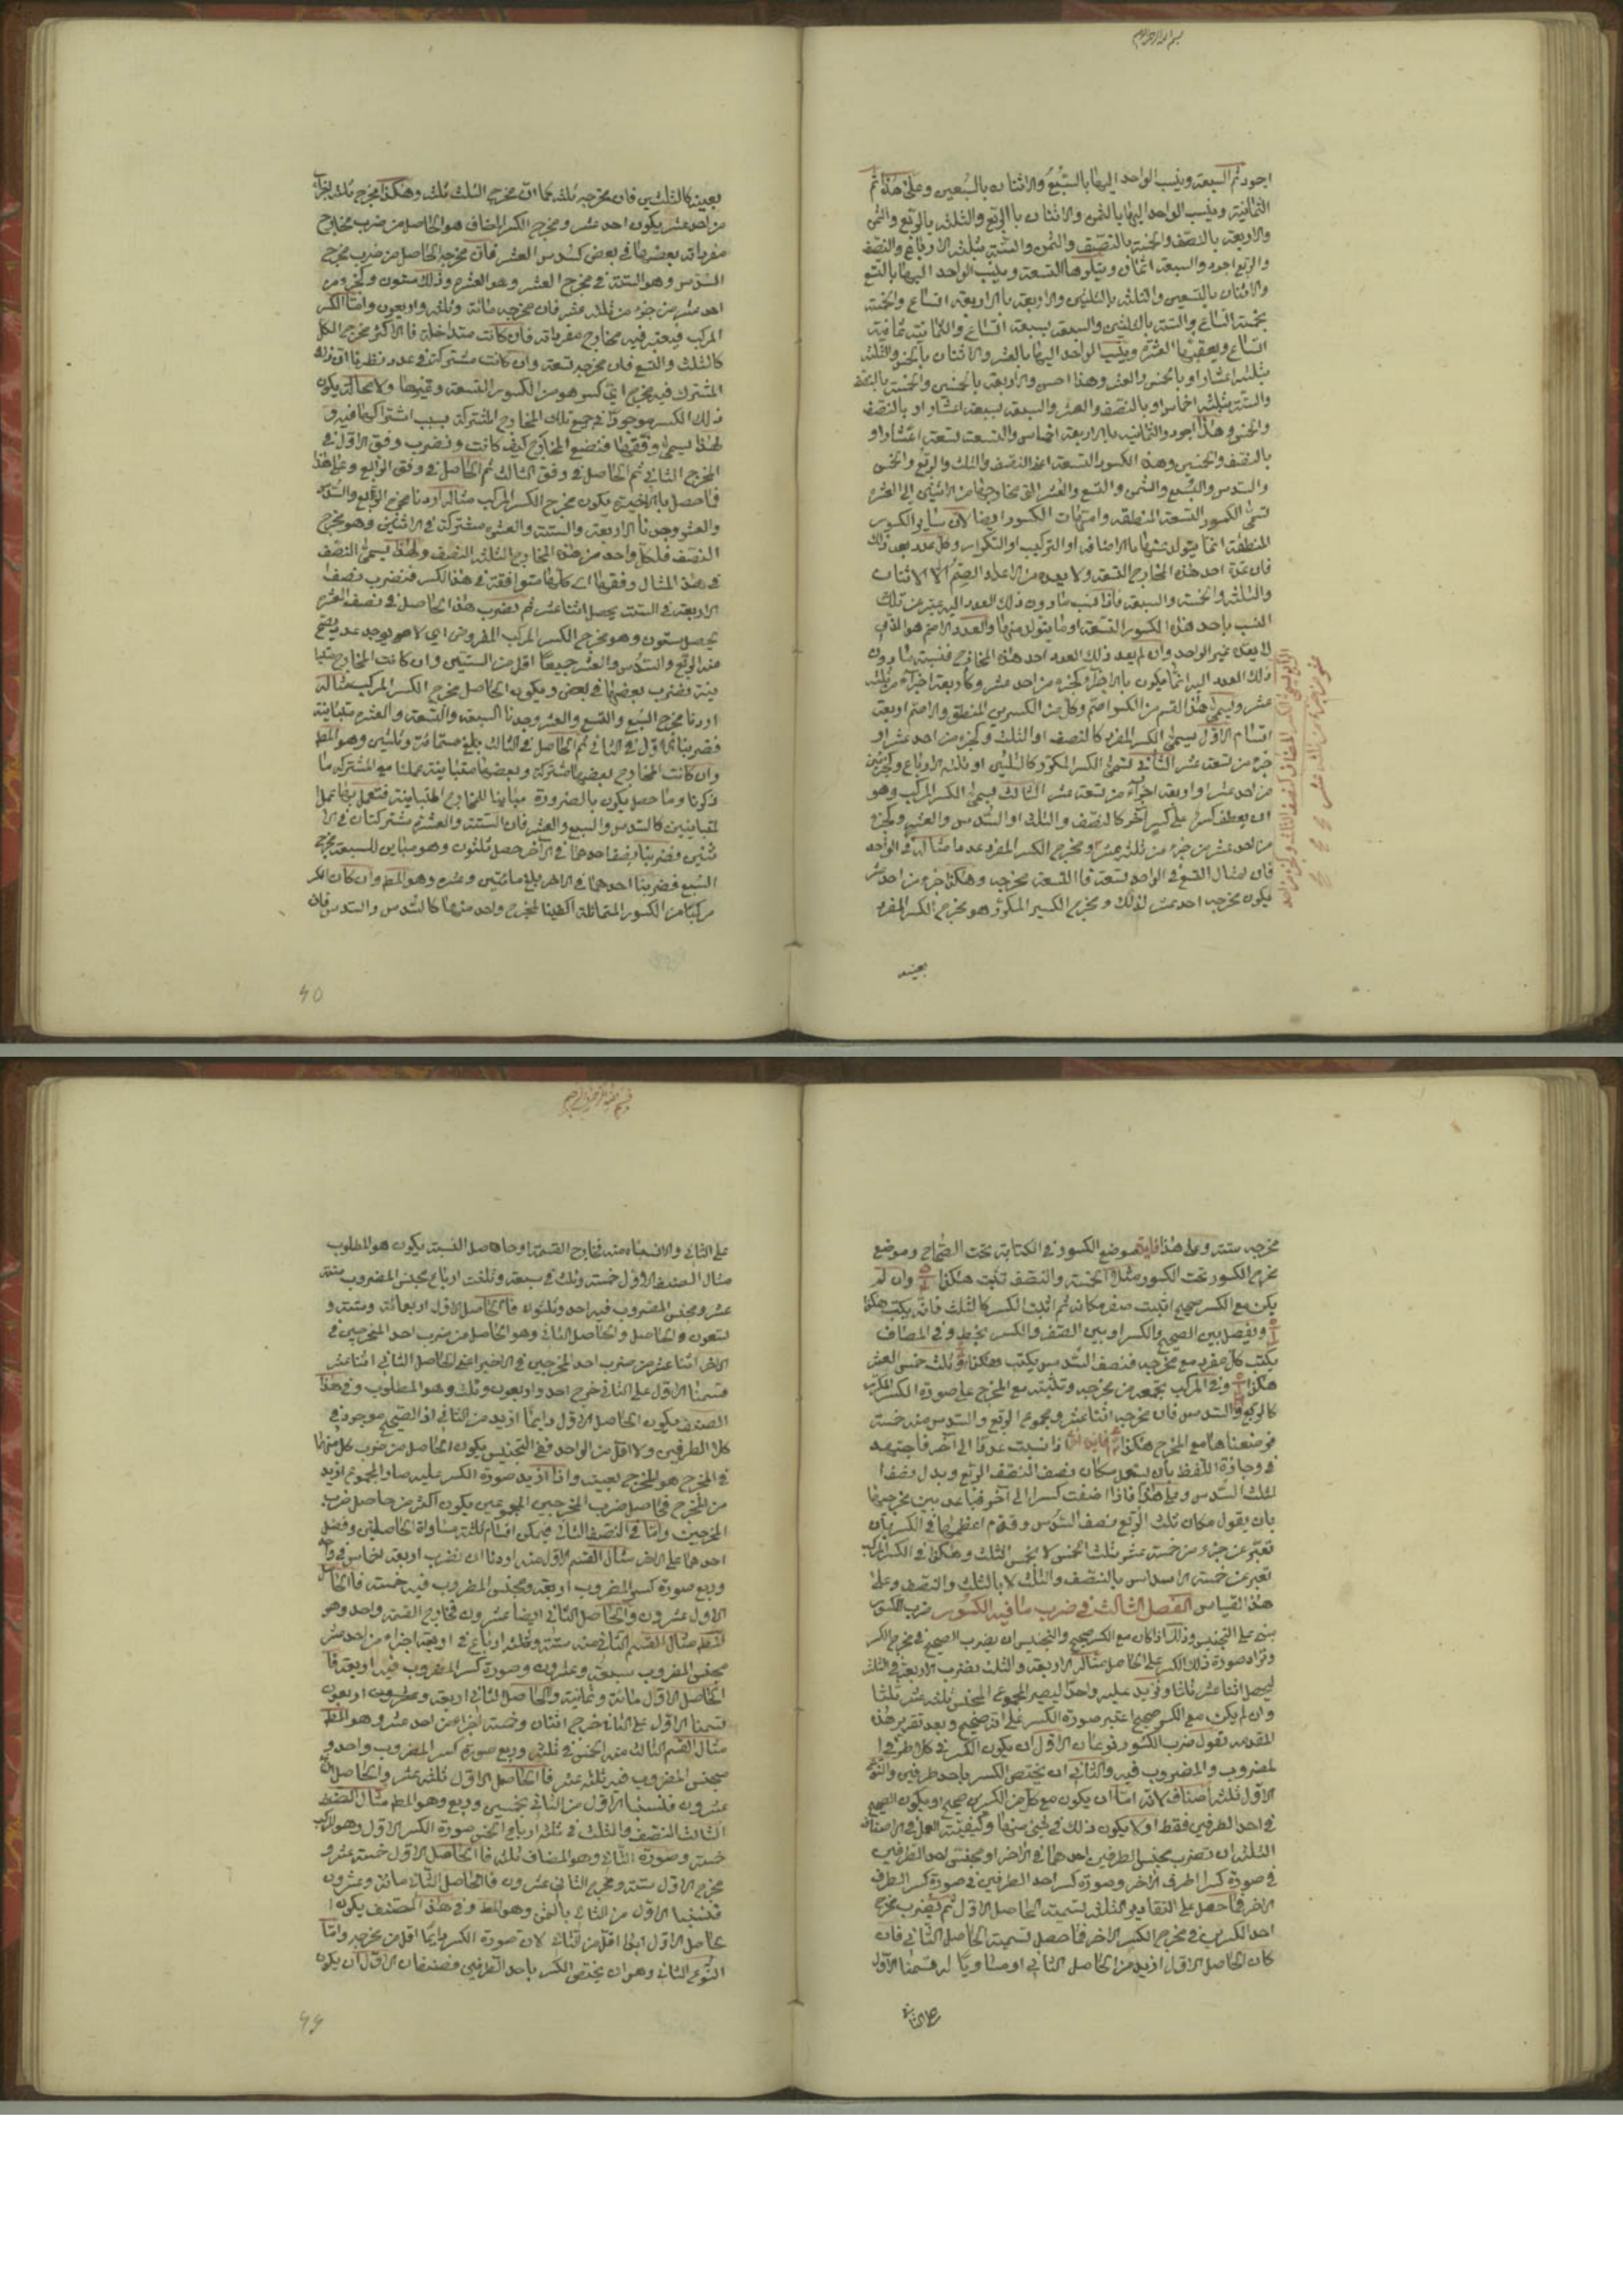 بسم الله الرحمن الرحيم
اجود ثم السبعة وينسب الواحد اليها بالسبع والاثنان بالسبعين وعلى هذا ثم
الثمانية وينسب الواحد اليها بالثمن والاثنان بالربع والثلثة بالربع والثمن
والاربعة بالنصف والخمسة بالنصف والثمن والستة بثلثة الارباع والنصف
والربع اجود والسبعة اثمان ويتلوها التسعة وينسب الواحد اليها بالتسع
والاثنان بالتسعين والثلثة بالثلث والاربعة بالاربعة اتساع والخمسة
بخمسة اتساع والستة بالثلثين والسبعة بسبعة اتساع والثمانية بثمانية
اتساع ويعقبها العشرة وينسب الواحد اليها بالعشر والاثنان بالخمس والثلثة
بثلثة اعشار او بالخمس والعشر وهذا احسن والاربعة بالخمسين والخمسة بالنصف
والستة بثلثة اخماس او بالنصف والعشر والسبعة بسبعة اعشار او بالنصف
والخمس وهذا اجود والثمانية بالاربعة اخماس والتسعة بتسعة اعشار او
بالنصف والخمسين وهذه الكسور التسعة اعنى النصف والثلث والربع والخمس
والسدس والسبع والثمن والتسع والعشر التى مخارجها من الاثنين الى العشرة
تسمى الكسور التسعة المنطقة وامهات الكسور ايضا لان سائر الكسور
المنطقة انما يتولد منها بالاضافة او التركيب او التكرار وكل عدد بعد ذلك
فان عدّه احد هذه المخارج التسعة ولا يعده من الاعداد الصم الا الاثنان
والثلثة والخمسة والسبعة فاذا نسب مادون ذلك العدد اليه عبر عن تلك
النسب باحد هذه الكسور التسعة او ما يتولد منها والعدد الاصم هو الذى
لا يعده غير الواحد وان لم يعد ذلك العدد احد هذه المخارج فنسبة مادون
ذلك العدد اليه انما يكون بالاجزاء كجزء من احد عشر وكاربعة اجزاء من ثلثة
عشر ويسمى هذا القسم من الكسر اصم وكل من الكسرين المنطق والاصم اربعة
اقسام الاول يسمى الكسر المفرد كالنصف او الثلث وكجزء من احد عشر او
جزء من تسعة عشر الثانى يسمى الكسر المكرر كالثلثين او ثلثة الارباع وكجزئين
من احد عشر او اربعة اجزاء من تسعة عشر الثالث يسمى الكسر المركب وهو
ان يعطف كسر على كسر آخر كالنصف والثلث او السدس والعشر وكجزء
من احد عشر من جزء من ثلثة عشر ومخرج الكسر المفرد عدد ما مثاله فى الواحد
فان امثال التسع فى الواحد تسعة فالتسعة مخرجه وهكذا جزء من احد عشر
يكون مخرجه احد عشر لذلك ومخرج الكسر المكرر هو مخرج الكسر المفرد
بعينه
بعينه كالثلثين فان مخرجه ثلثة كما ان مخرج الثلث ثلثة وهكذا مخرج ثلثة اجزاء
من احد عشر يكون احد عشر ومخرج الكسر المضاف هو الحاصل من ضرب مخارج
مفرداته بعضها فى بعض كسدس العشر فان مخرجه الحاصل من ضرب مخرج
السدس وهو الستة فى مخرج العشر وهو العشرة وذلك ستون وكجزء من
احد عشر من جزء من ثلثة عشر فان مخرجه مائة وثلثة واربعون واما الكسر
المركب فيعتبر فيه مخارج مفرداته فان كانت متداخلة فالاكثر مخرج الكل
كالثلث والتسع فان مخرجه تسعة وان كانت مشتركة فى عدد نظرنا ان ذلك
المشترك فيه مخرج اى كسر هو من الكسور التسعة وغيرها ولا محالة يكون
ذلك الكسر موجودا فى جميع تلك المخارج المشتركة بسبب اشتراكها فيه و
لهذا يسمى وفقها فنضع المخارج كيف كانت ونضرب وفق الاول فى
المخرج الثانى ثم الحاصل فى وفق الثالث ثم الحاصل فى وفق الرابع وعلى هذا
فما حصل بالاخرة يكون مخرج الكسر المركب مثاله اردنا مخرج الربع والسدس
والعشر وجدنا الاربعة والستة والعشرة مشتركة فى الاثنين وهو مخرج
النصف فلكل واحد من هذه المخارج الثلثة النصف ولهذا يسمى النصف
فى هذا المثال وفقها اى كلها متوافقة فى هذا الكسر فنضرب نصف
الاربعة فى الستة يحصل اثنا عشر ثم نضرب هذا الحاصل فى نصف العشرة
يحصل ستون وهو مخرج الكسر المركب المفروض اى لا يوجد عدد يصح
منه الربع والسدس والعشر جميعا اقل من الستين وان كانت المخارج متبا
ينة نضرب بعضها فى بعض ويكون الحاصل مخرج الكسر المركب مثاله
اردنا مخرج السبع والتسع والعشر وجدنا السبعة والتسعة والعشرة متباينة
فضربنا الاول فى الثانى ثم الحاصل فى الثالث بلغ ستمائة وثلثين وهو المط
وان كانت المخارج بعضها مشتركة وبعضها متباينة عملنا مع المشتركة ما
ذكرنا وما حصل يكون بالضرورة مباينا للمخارج المتباينة فنعمل بها عمل
المتباينين كالسدس والسبع والعشر فان الستة والعشرة مشتركتان فى الا
ثنين وضربنا نصف احدهما فى الآخر حصل ثلثون وهو مباين للسبعة مخرج
السبع فضربنا احدهما فى الاخر بلغ مائتين وعشرة وهو المط وان كان الكسر
مركبا من الكسور المتماثلة اكتفينا بمخرج واحد منهما كالسدس والسدس فان
مخرجه ستة وعلى هذا فاية موضع الكسور فى الكتابة تحت الصحاح وموضع
مخرج الكسور تحت الكسور مثلا الخمسة والنصف تثبت هكذا وان لم
يكن مع الكسر صحيح اثبت صفر مكانه ثم اثبت الكسر كالثلث فانه يكتب هكذا
ويفصل بين الصحيح والكسر او بين الصفر والكسر بخط وفى المضاف
يكتب كل مفرد مع مخرجه فنصف السدس يكتب هكذا وثلث خمس العشر
هكذا وفى المركب تجمعه من مخرجه وتثبته مع المخرج على صورة الكسر المكرر
كالربع والسدس فان مخرجه اثنا عشر ومجموع الربع والسدس منه خمسة
فوضعناها مع المخرج هكذا اذا نسبت عددا الى آخر فاجتهد
فى وجازة اللفظ بان يستعمل مكان نصف النصف الربع وبدل نصف
الثلث السدس وعلى هذا فاذا اضفت كسرا الى آخر فباعد بين مخرجيهما
بان يقول مكان ثلث الربع نصف السدس وقدم اعظمهما فى الكسر بان
تعبر عن جزء من خمسة عشر بثلث الخمس لا بخمس الثلث وهكذا فى الكسر المركب
تعبر عن خمسة الاسداس بالنصف والثلث لا بالثلث والنصف وعلى
هذا القياس الفصل الثالث فى ضرب ما فيه الكسور ضرب الكسور
يبنى على التجنيس وذلك اذا كان مع الكسر صحيح والتجنيس ان يضرب الصحيح فى مخرج الكسر
وتزاد صورة ذلك الكسر على الحاصل مثاله الاربعة والثلث نضرب الاربعة فى الثلثة
ليحصل اثنا عشر ثلثا ونزيد عليه واحدا ليصير المجموع المجنس ثلثة عشر ثلثا
وان لم يكن مع الكسر صحيح اعتبر صورة الكسر على انه صحيح وبعد تقرير هذه
المقدمة نقول ضرب الكسور نوعان الاول ان يكون الكسر فى كلا طرفى ا
لمضروب والمضروب فيه والثانى ان يختص الكسر باحد طرفين والنوع
الاول ثلثة اصناف لانه اما ان يكون مع كل من الكسرين صحيح او يكون الصحيح
فى احد الطرفين فقط او لا يكون ذلك فى شئ منهما وكيفية العمل فى الاصناف
الثلثة ان تضرب مجنس الطرفين احدهما فى الاخر او مجنس احد الطرفين
فى صورة كسر الطرف الاخر او صورة كسر احد الطرفين فى صورة كسر الطرف
الاخر فما حصل على التقادير الثلثة تسميته الحاصل الاول ثم يضرب مخرج
احد الكسرين فى مخرج الكسر الاخر فما حصل تسميته الحاصل الثانى فان
كان الحاصل الاول ازيد من الحاصل الثانى او مساويا له قسمنا الاول
على الثانى
على الثانى والا نسبناه منه فخارج القسمة او حاصل النسبة يكون هو المطلوب
مثال الصنف الاول خمسة وثلث فى سبعة وثلثة ارباع مجنس المضروب ستة
عشر ومجنس المضروب فيه احد وثلثون فالحاصل الاول اربعمائة وستة و
تسعون والحاصل الثانى وهو الحاصل من ضرب احد المخرجين فى
الآخر اثنا عشر من ضرب احد المخرجين فى الاخير اعنى الحاصل الثانى اثنا عشر
قسمنا الاول على الثانى خرج احد واربعون وثلث وهو المطلوب وفى هذا
الصنف يكون الحاصل الاول دايما ازيد من الثانى اذ الصحيح موجود فى
كلا الطرفين ولا اقل من الواحد ففى التجنيس يكون الحاصل من ضرب كل منهما
فى المخرج هو المخرج بعينه واذا ازيد صورة الكسر عليه صار المجموع ازيد
من المخرج فحاصل ضرب المخرجين المجموعين يكون اكثر من حاصل ضرب
المخرجين واما فى النصف الثانى فيمكن اقسام ثلثة مساواة الحاصلين وفضل
احدهما على الاخر مثال القسم الاول منه اردنا ان نضرب اربعة اخماس فى واحد
وربع صورة كسر المضروب اربعة ومجنس المضروب فيه خمسة فالحاصل
الاول عشرون والحاصل الثانى ايضا عشرون فخارج القسمة واحد وهو
المط مثال القسم الثانى منه ستة وثلثة ارباع فى اربعة اجزاء من احد عشر
مجنس المضروب سبعة وعشرون وصورة كسر المضروب فيه اربعة فا
لحاصل الاول مائة وثمانية والحاصل الثانى اربعة واربعون
قسمنا الاول على الثانى خرج اثنان وخمسة اجزاء من احد عشر وهو المط
مثال القسم الثالث منه الخمس فى ثلثة وربع صورة كسر المضروب واحد و
مجنس المضروب فيه ثلثة عشر فالحاصل الاول ثلثة عشر والحاصل الثانى
عشرون فنسبنا الاول من الثانى بخمسين وربع وهو المط مثال الصنف
الثالث النصف والثلث فى ثلثة ارباع الخمس صورة الكسر الاول وهو المركب
خمسة وصورة الثانى وهو المضاف ثلثة فالحاصل الاول خمسة عشر و
مخرج الاول ستة ومخرج الثانى عشرون فالحاصل الثانى مائة وعشرون
فنسبنا الاول من الثانى بالثمن وهو المط وفى هذا الصنف يكون ا
لحاصل الاول ابدا اقل من الثانى لان صورة الكسر دايما اقل من مخرجه واما
النوع الثانى وهو ان يختص الكسر باحد الطرفين فصنفان الاول ان يكون